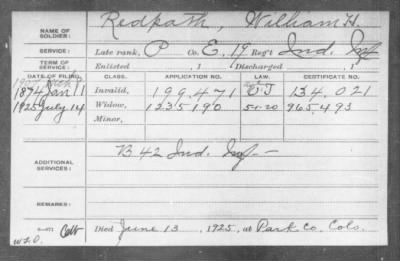 NAME OF SOLDIER: Redpath, William H.
SERVICE: Late rank, P Co. E, 19 Reg't Ind. Inf
TERM OF SERVICE: Enlisted , 1 Discharged , 1
DATE OF FILING. CLASS. APPLICATION NO. LAW. CERTIFICATE NO.
1874 Jan 11 Invalid, 199,471 134,021
1925 July 14 Widow, 1235190 5-1-20 965,493
Minor,
ADDITIONAL SERVICES: B 42 Ind. Inf
REMARKS:
Died June 13, 1925, at Park Co. Colo.